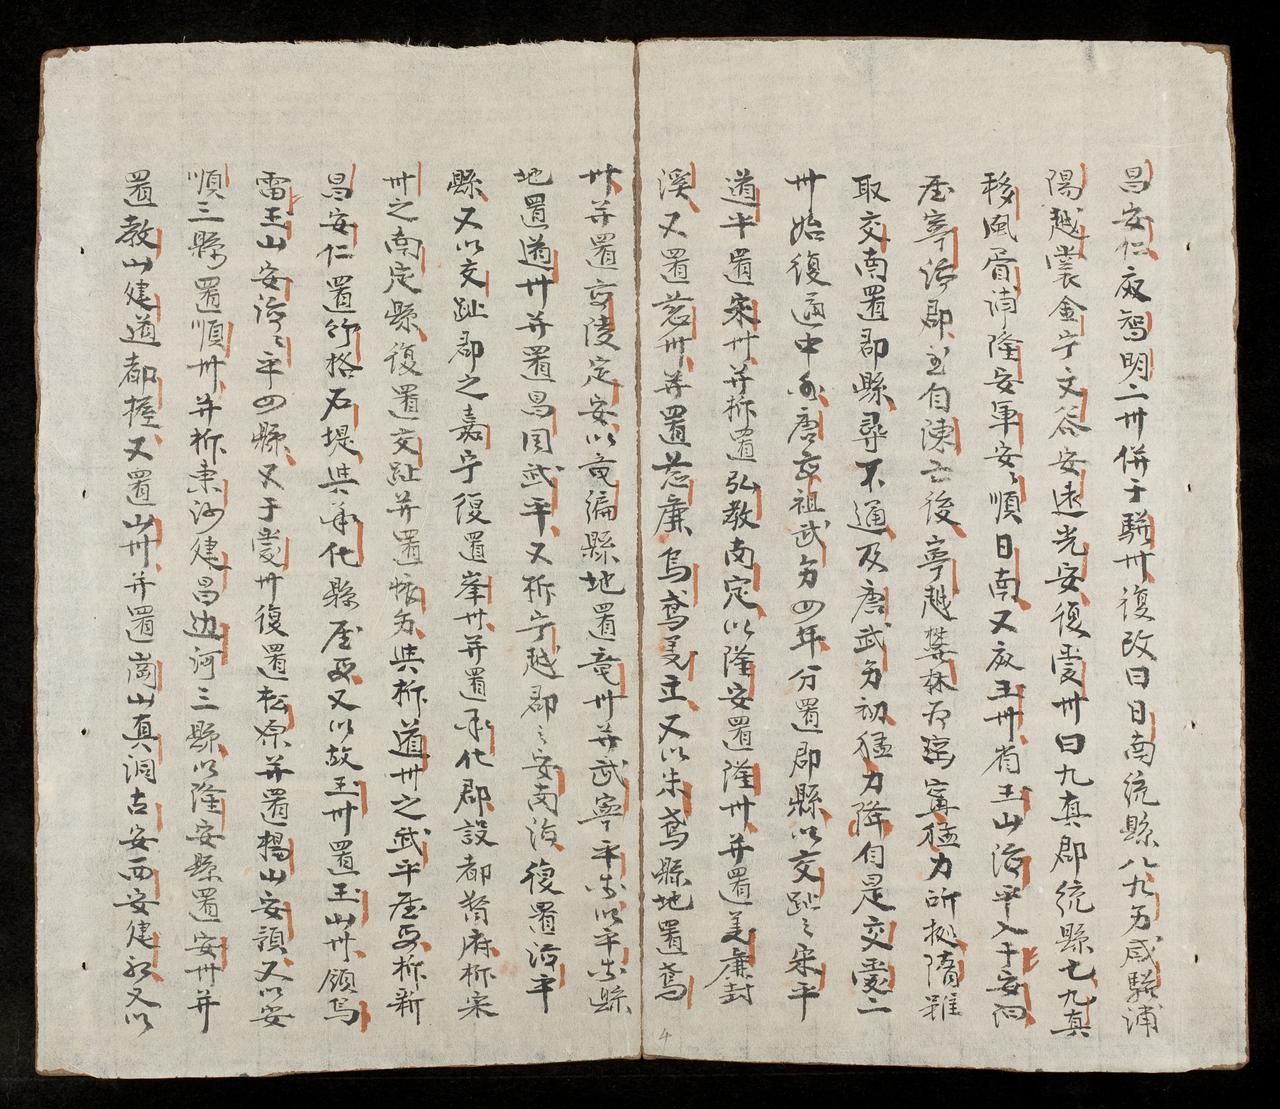 昌安仁廢智明二卅併于驩卅復改曰日南統縣八九另咸驩浦
陽越裳金宁文谷安遠光安復愛卅曰九真郡統縣七九真
移風胥浦隆安軍安〻順日南又廢玉卅省玉山治平入于安泊
屋寧治郡至自陳亡後寧越欝林為寧猛力所挺隋雖
取交南置郡縣尋不通及唐武另初猛力降自是交愛二
卅始復通中國唐高祖武另四年分置郡縣以交趾〻宋平
道平置宋卅并柝置弘教南定以隆安置隆卅并置義廉封
溪又置慈卅并置慈廉烏鳶武立又以朱鳶縣地置鳶
卅并置高陵定安以羸𨻻縣地置竜卅并武寧平樂以平樂縣
地置道卅并置昌国武平又柝宁越郡〻安南治復置治平
縣又以交趾郡之嘉宁復置峯卅并置承化郡設都督府柝宋
卅之南定縣復置交趾并置懷另與柝道卅之武平屋更柝新
昌安仁置竹格石堤與承化縣屋更又以故玉卅置玉山卅領烏
雷玉山安海〻平四縣又于愛卅復置松原并置楊山安預又以安
順三縣置順卅并柝東河建昌边河三縣以隆安縣置安卅并
置教山建道都握又置山卅并置崗山真洞古安西安建初又以
4